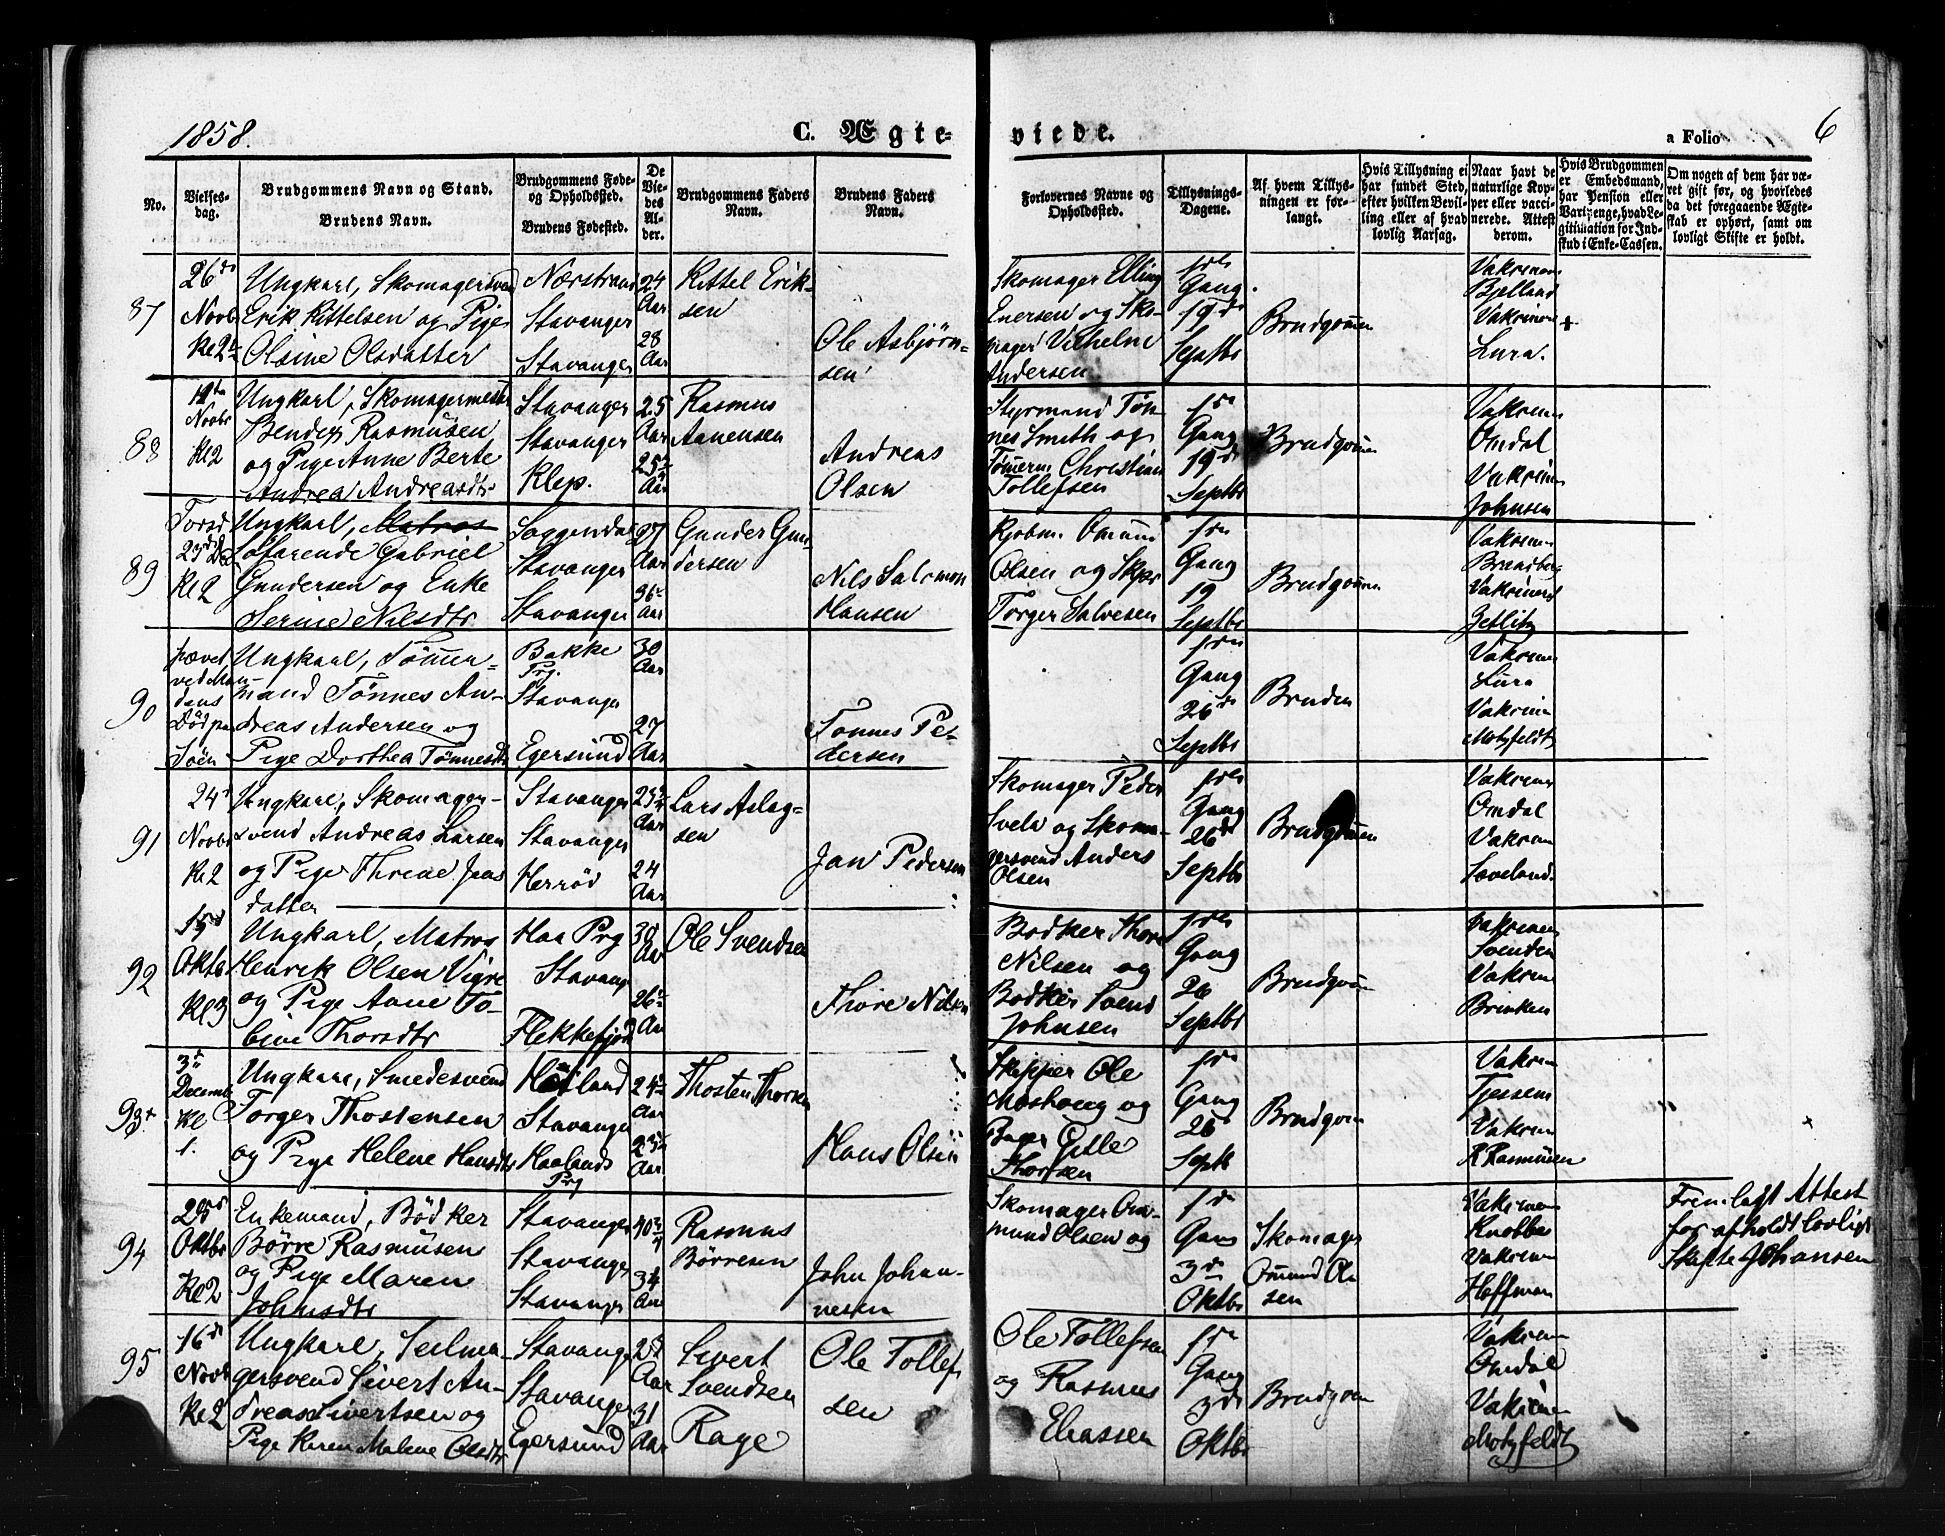 1858.
C. Ægte-
viede.
a Folio
6
No.
Vielses-
dag.
Brudgommens Navn og Stand.
Brudens Navn.
Brudgommens Føde-
og Opholdssted.
Brudens Fødested.
De
Vie-
des
Al-
der.
Brudgommens Faders
Navn.
Brudens Faders
Navn.
Forlovernes Navne og
Opholdssted.
Tillysnings-
Dagene.
Af hvem Tillys-
ningen er for-
langt.
Hvis Tillysning ei
har fundet Sted,
efter hvilken Bevil-
ling eller af hvad
lovlig Aarsag.
Naar havt de
naturlige Kop-
per eller vacci-
nerede. Attest
derom.
Hvis Brudgommen
er Embedsmand,
har Pension eller
Vartpenge, hvad Le-
gitimation for Ind-
skud i Enke-Cassen.
Om nogen af dem har væ-
ret gift før, og hvorledes
da det foregaaende Ægte-
skab er ophørt, samt om
lovligt Skifte er holdt.
87
26de
Novbr
Kl 2
Ungkarl, Skomagersvend
Erik Kittelsen og Pige
Olsine Olsdatter
Nærstrand
Stavanger
Stavanger
24
Aar
28
Aar
Kittel Erik-
sen
Ole Asbjørn-
sen
Skomager Elling
Enersen og Sko-
mager Vilhelm
Andersen
Gang
19de
Septbr
Brudgommen
Vakcinen
Bjelland
Vakcinen
Lura.
88
Novbr
Kl 2
Ungkarl, Skomagermester
Bendix Rasmusen
og Pige Anne Berte
Andrea Andreasdtr
Stavanger
Stavanger
Klep.
25
Aar
25
Aar
Rasmus
Aanensen
Andreas
Olsen
Styrmand Tøn-
nes Smith og
Tømerm Christian
Tollefsen
Gang
19de
Septbr
Brudgommen
Vakcinen
Omdal
Vakcinen
Johnsen
89
Torsd
23de
Kl 2
Ungkarl, Matros
Søfarende Gabriel
Gundersen og Enke
Serine Nilsdtr
Soggendal
Stavanger
Stavanger
27
Aar
36
Aar
Gunder Gun-
dersen
Nils Salomon
Hansen
Kjøbm. Omund
Olsen og Skpr
Torger Salvesen
Gang
19
Septbr
Brudgommen
Vakcinen
Brandberg
Vakcinen
Zetlitz
90
hævet
ved Man-
dens
Død paa
Søen
Ungkarl, Tømmer-
mand Tönnes An-
dreas Andersen og
Pige Dorthea Tønnesdtr
Bakke
Prg.
Stavanger
Egersund
30
Aar
27
Aar
Tønnes Pe-
dersen
Gang
26de
Septbr
Bruden
Vakcinen
Lura
Vakcinen
Motzfeldt
91
24de
Novbr
Kl 2
Ungkarl, Skomager-
svend Andreas Larsen
og Pige Thrine Jans
datter
Stavanger
Stavanger
Herrød
23
Aar
24
Aar
Lars Aslag-
sen
Jan Pedersen
Skomager Peder
Svela og Skoma-
gersvend Anders
Olsen
Gang
26de
Septbr
Brudgommen
Vakcinen
Omdal
Vakcinen
Løveland.
92
Oktbr
Kl 3
Ungkarl, Matros
Henrik Olsen Vigre
og Pige Anne To-
bine Thorsdtr
Haa Prg
Stavanger
Flekkefjord
30
Aar
26
Aar
Ole Svendsen
Thore Nilsen
Bødker Thore
Nilsen og
Bødker Svend
Johnsen
Gang
26
Septbr
Brudgommen
Vakcinen
Svendsen
Vakcinen
Brinken
93
3de
December
Kl
1.
Ungkarl, Smedesvend
Torger Thostensen
og Pige Helene Hansdtr
Stavanger
Haalands
Prg
24
Aar
23
Aar
Thosten Thorsen
Hans Olsen
Skipper Ole
Moshoug og
Bager Gitle
Thorsen
Gang
26
Sept
Brudgommen
Vakcinen
Tjessem
Vakcinen
R Rasmusen
94
Oktbr
Kl 2
Enkemand, Bødker
Børre Rasmusen
og Pige Maren
Johnsdtr
Stavanger
Stavanger
Stavanger
40
34
Aar
Rasmus
Børresen
John Johan-
nesen
Skomager Om-
mund Olsen og
Gang
3de
Oktbr
Skomager
Omund Ol
sen
Vakcinen
Knobbe
Vakcinen
Hoffman
Fremlagt Attest
for afholdt lovligt
Skifte Johansen
95
16de
Novbr
Kl 2
Ungkarl, Seilma-
gersvend Sivert An-
dreas Sivertsen og
Pige Karen Malene Olsdtr
Stavanger
Stavanger
Egersund
Aar
31
Aar
Sivert
Svendsen
Rage
Ole Tollef
sen
Ole Tollefsen
og Rasmus
Eliassen
Gang
3de
Oktbr
Brudgommen
Vakcinen
Omdal
Vakcinen
Motzfeldt